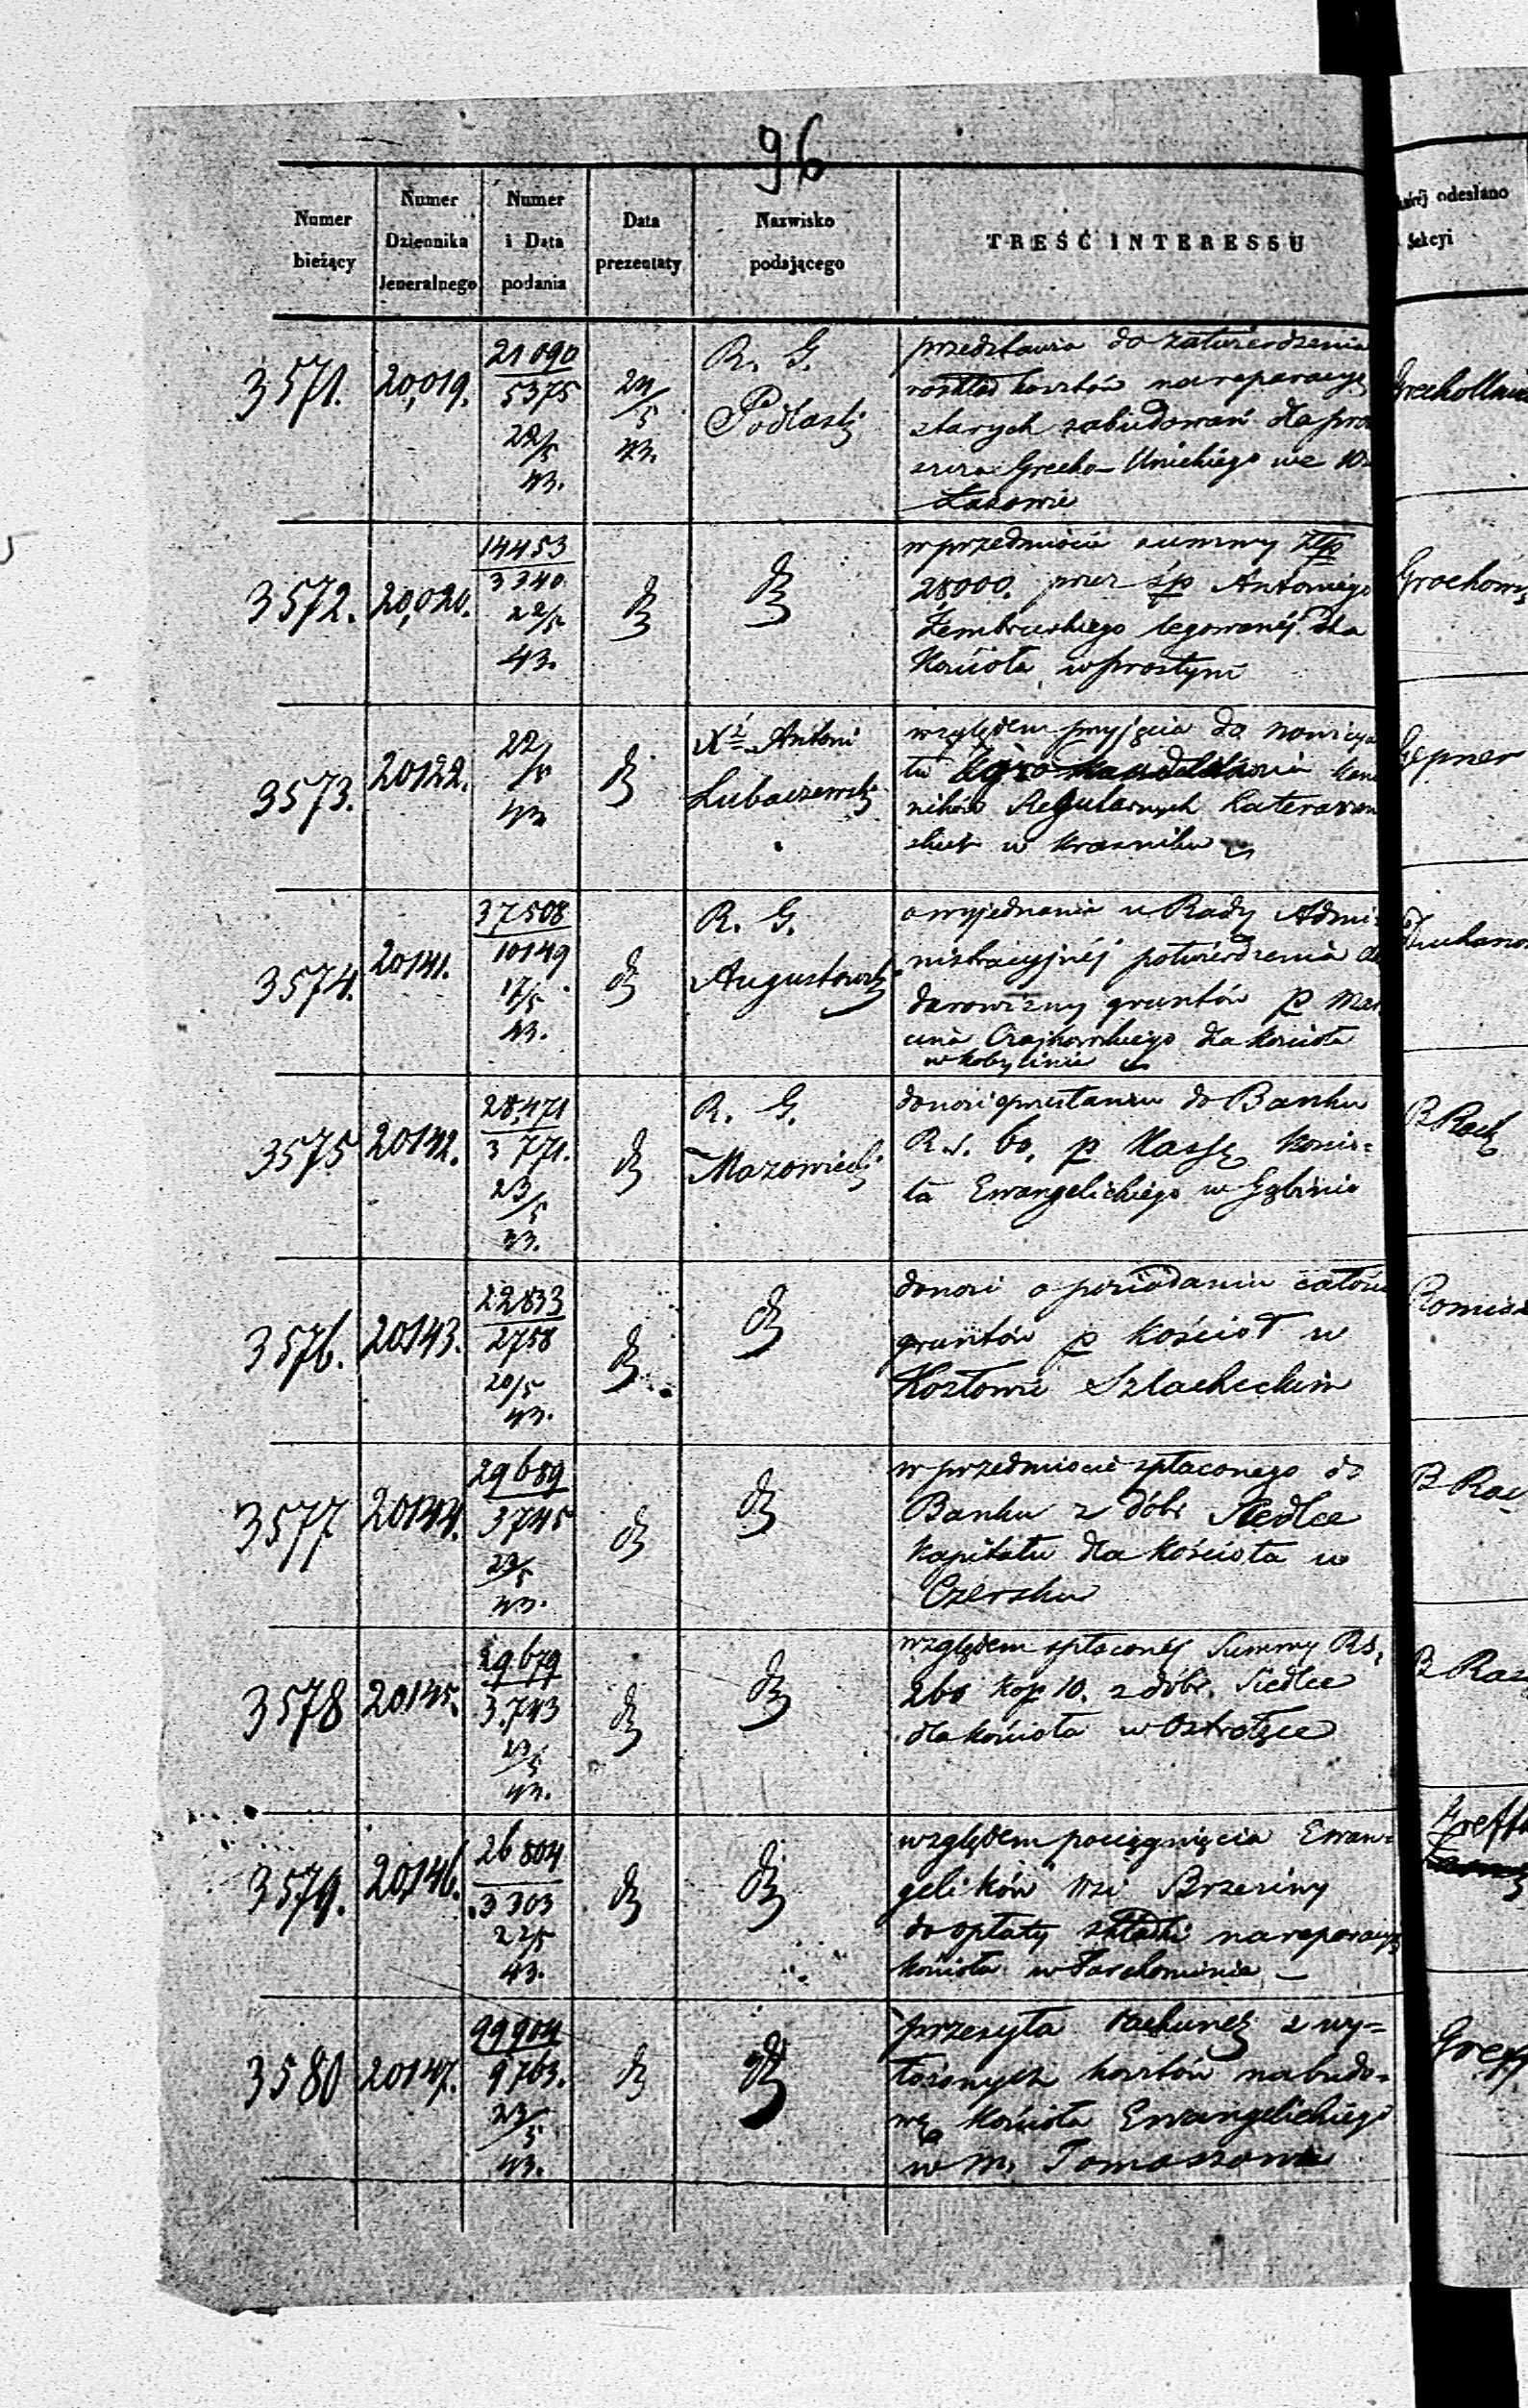 96
Numer bieżący
Numer Dziennika Jeneralnego
Numer i Data podania
Data prezentaty
Nazwisko podającego
TREŚĆ INTERESSU
odesłano
Sekcyi
3571. 20,019. 21090 5375 22/5 43. 24/5 43. R. G. Podlaski
przedstawia do zatwierdzenia
rozkład kosztów na reparacyę
starych zabudowań dla pro
szcza Grecko-Unickiego we
3572. 20,020. 14453 3340 22/5 43. d
w przedmiocie summy Złp
28000. przez śp Antoniego
legowanéj dla
Kościoła w prostym
Grochows
3573. 20122. 22/5 43 Xz Antoni Lubaczewski
względem przyjęcia do nowicya
tu kano
ników Regularnych Lateranen
skich w Krasniku
Hepner
3574. 20141. 37508 10149 17/5 43. R. G. Augustowski
o wyjednanie u Rady Admi-
nistracyjnéj potwierdzenia
darowizny gruntów p Mar
cina Czajkowskiego dla kościoła
w Kobylinie
3575 20142. 28,471 3771. 23/5 43. R. G. Mazowiecki
donosi o przesłaniu do Banku
R.s. 60. p Kassę Kościo-
ła Ewangelickiego w Gąbinie
3576. 20143. 22833 2758 20/5 43.
donosi o posiadaniu całości
gruntów p Kościoł w
Kozłowie Szlacheckim
3577. 20144. 29689 3745 23/5 43.
w przedmiocie spłaconego do
Banku z dóbr Siedlce
Kapitału dla Kościoła w
Czersku
3578 20145. 29679 3.743 43.
względem spłaconéj Summy Rs.
260 Kop 10. z dóbr. Siedlce
dla kościoła w Ostrołęce
3579. 20146. 26804 3303 22/5 43.
względem pociągnięcia Ewan-
gelików wsi Brzeziny
do opłaty składki na reparacyę
kościoła w
3580 20147. 99904 9763. 23/5 43.
przesyła rachunek z wy-
łożonych kosztów na budo-
wę Kościoła Ewangelickiego
w m. Tomaszowie